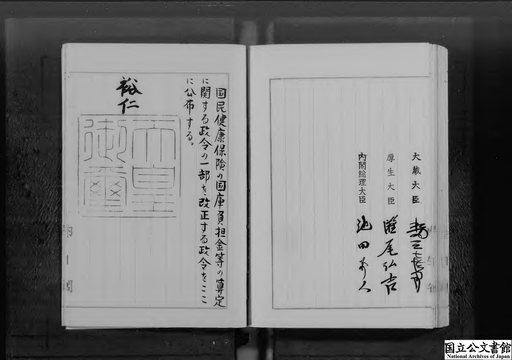 大蔵大臣
厚生大臣 灘尾弘吉
内閣総理大臣 池田勇人
国民健康保険の国庫負担金等の算定
に関する政令の一部を改正する政令をここ
に公布する。
裕仁
天皇
御璽
国立公文書館
National Archives of Japan